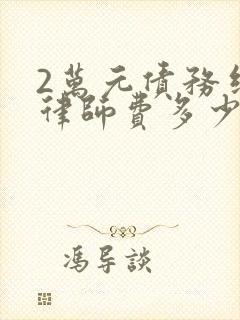 2萬元債務糾
律師費多少
馮导談